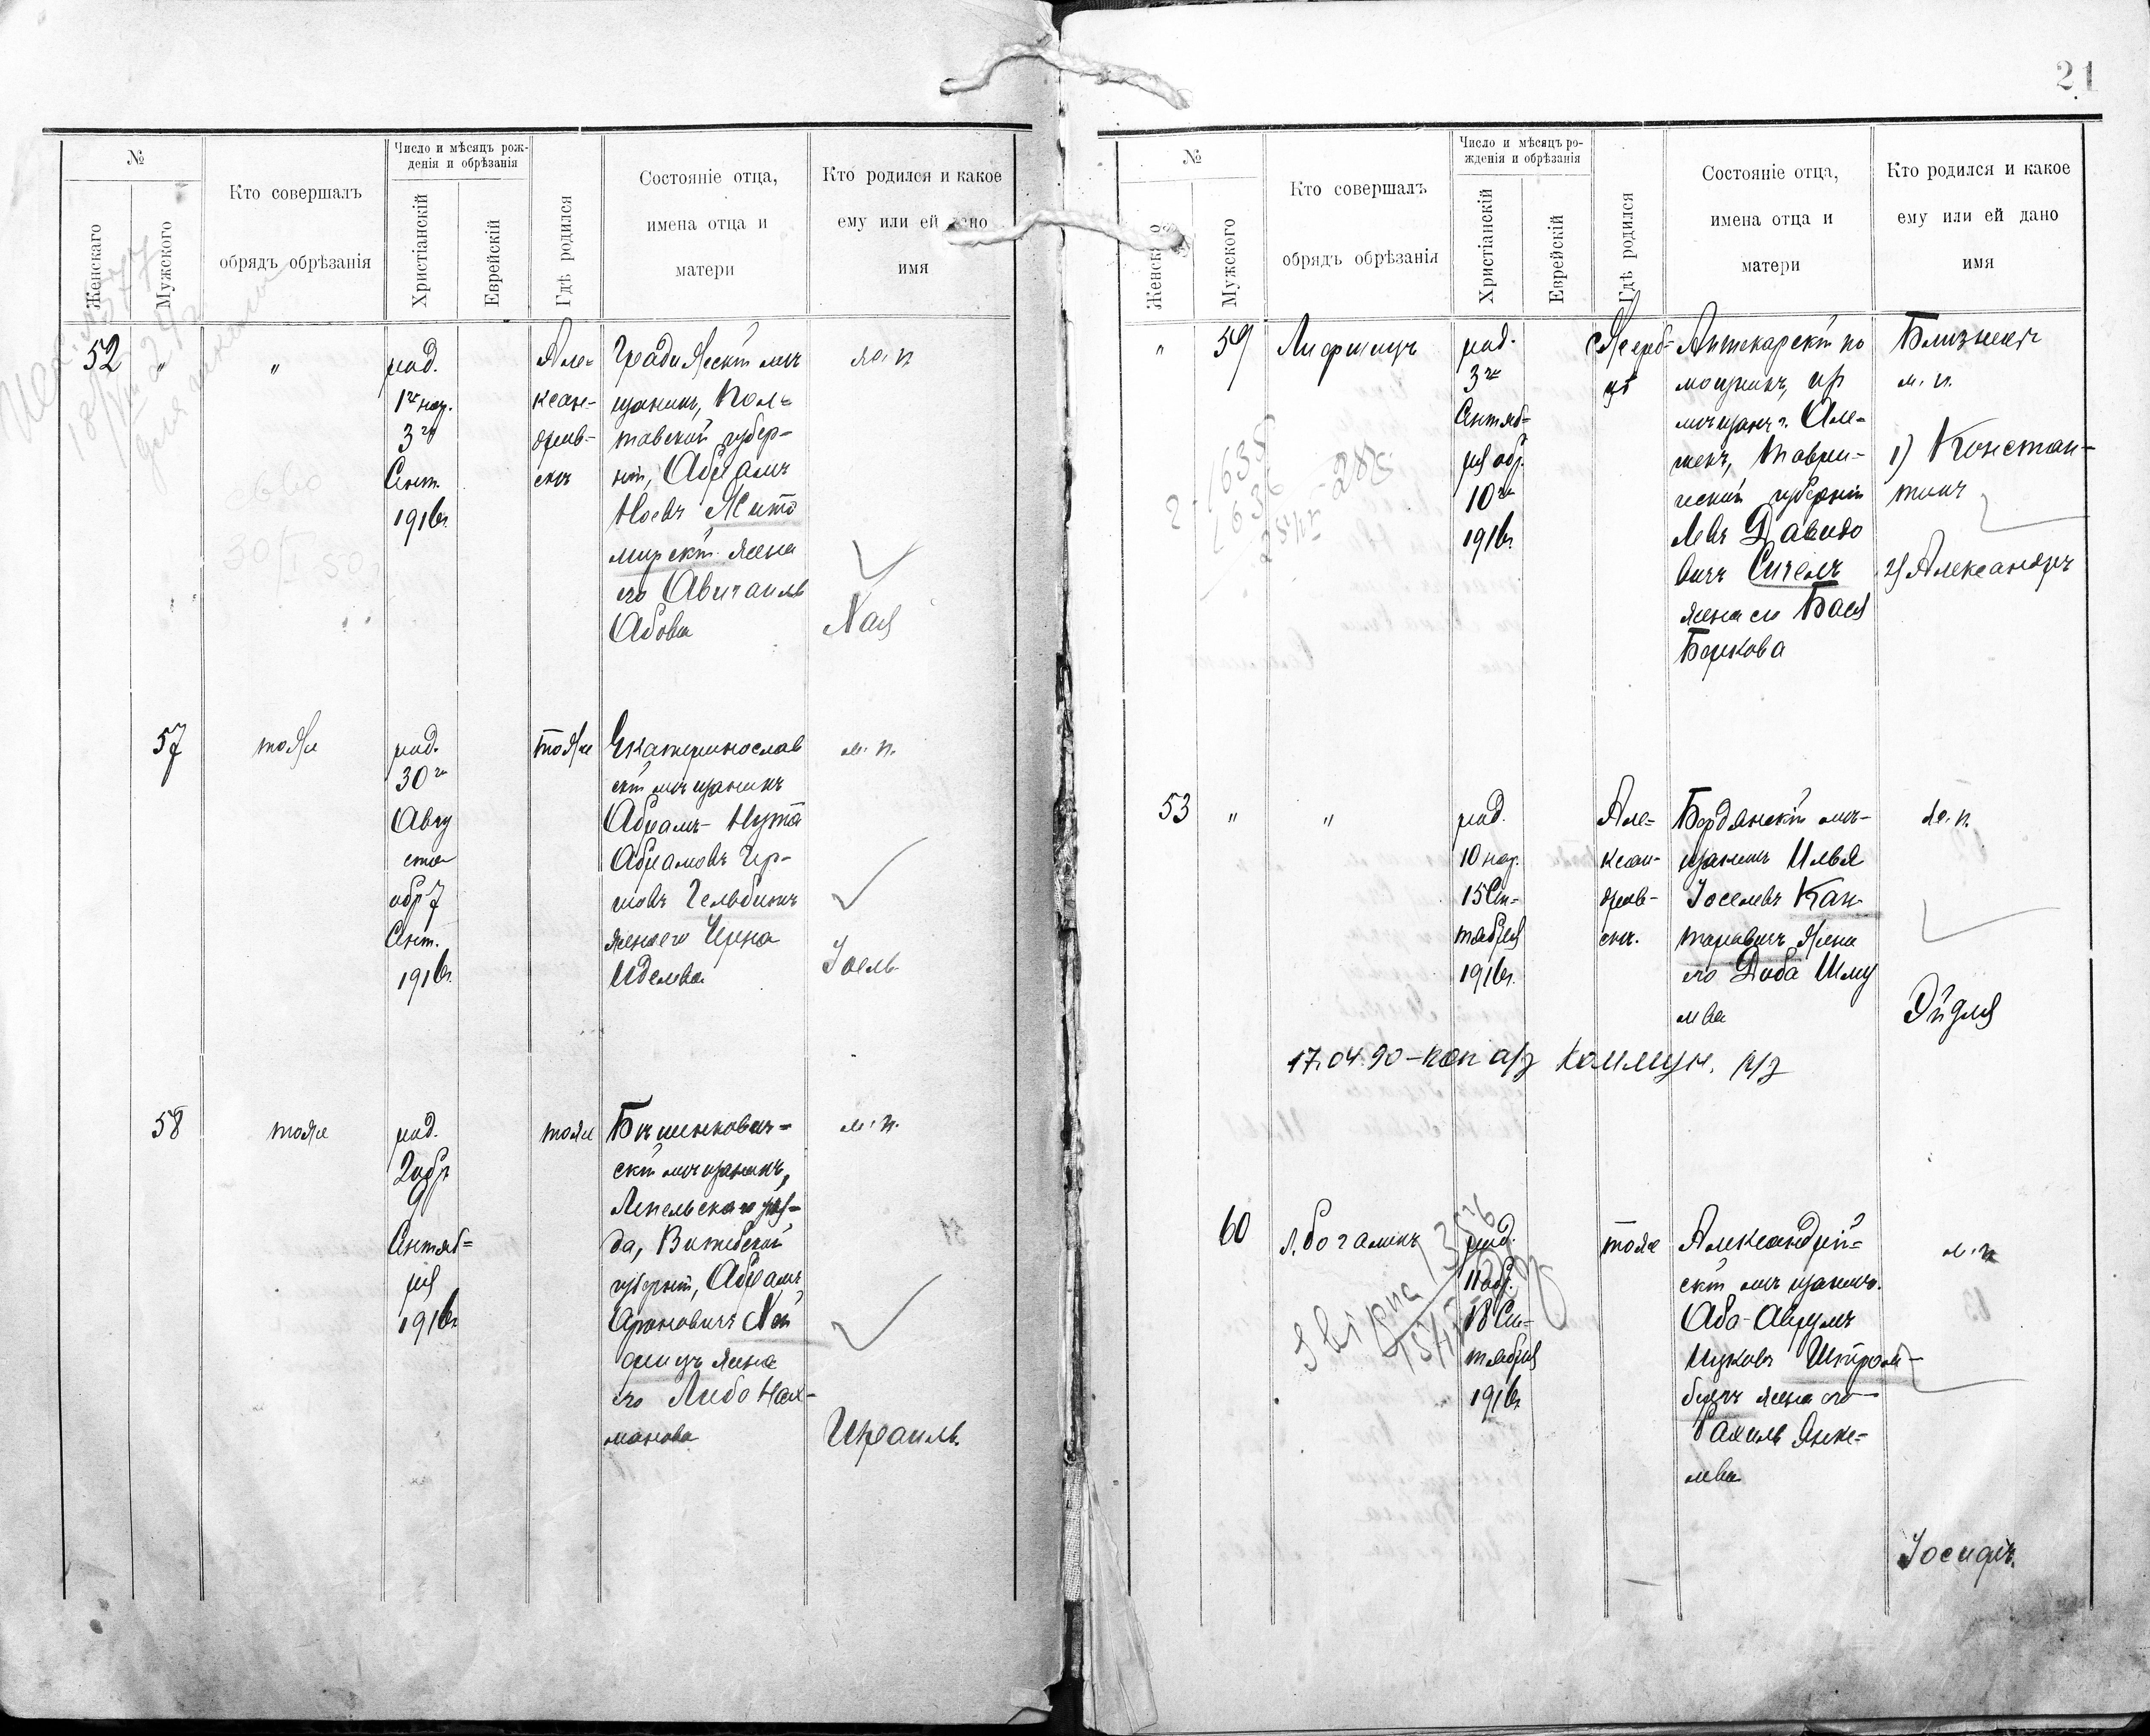 №
Женскаго
Мужского
Кто совершалъ
обрядъ обрѣзанія
Число и мѣсяцъ рож-
денія и обрѣзанія
Христіанскій
Еврейскій
Гдѣ родился
Состояніе отца,
имена отца и
матери
Кто родился и какое
ему или ей дано
имя
52 " "
род.
1го нар.
3го
Сент.
1916г.
Але-
ксан-
дров-
скъ
Градижскій мѣ
щанинъ, Пол-
тавской губер-
ніи, Абрамъ
Ноевъ Жито
мирскій жена
его Авигаиль
Абова
ж. п.
Хая
57
тоже
род.
30го
Авгу
ста
обр 7
Сент.
1916г.
тоже
Екатеринослав
скій мѣщанинъ
Абрамъ-Нута
Абрамовъ
Гельбинъ
жена его
Иделева
м. п.
Іоель
58
тоже
род.
2 обр
9
Сентяб-
ря
1916г.
тоже
Бѣшенкович-
скій мѣщанинъ,
Лепельскаго уѣз-
да, Витебской
губерніи, Абрамъ
Ароновичъ Хей
фицъ жена
его Либа Нах-
манова
м. п.
Израиль.
21
№
Женскаго
Мужского
Кто совершалъ
обрядъ обрѣзанія
Число и мѣсяцъ ро-
жденія и обрѣзанія
Христіанскій
Еврейскій
Гдѣ родился
Состояніе отца,
имена отца и
матери
Кто родился и какое
ему или ей дано
имя
" 59
Лифшицъ
род.
3го
Сентяб-
ря обр.
10го
1916г.
Аптекарскій по
мощникъ, из
мѣщанъ г. Але-
шекъ, Таври-
ческой губерніи
Левъ Давидо
вичъ Сигелъ
жена его Бася
Беркова
Близнецы
м. п.
1) Констан-
тинъ
2) Александръ
53 " "
род.
10 нар.
15 Сен-
тября
1916г.
Але-
ксан-
дров-
скъ.
Бердянскій мѣ-
щанинъ Илья
Іоселевъ Кан-
таровичъ жена
его Доба Шму
лева
ж. п.
Эйдля
17.04.90 - коп а/з Коммун. р/з
60
Л. Богатинъ
род.
11 обр.
18 Сен-
тября
1916г.
тоже
Александрій-
скій мѣщанинъ.
Аба-Аврумъ
Ицковъ Штром-
бергъ жена его
Рахиль Янке-
лева
м. п.
Іосифъ.